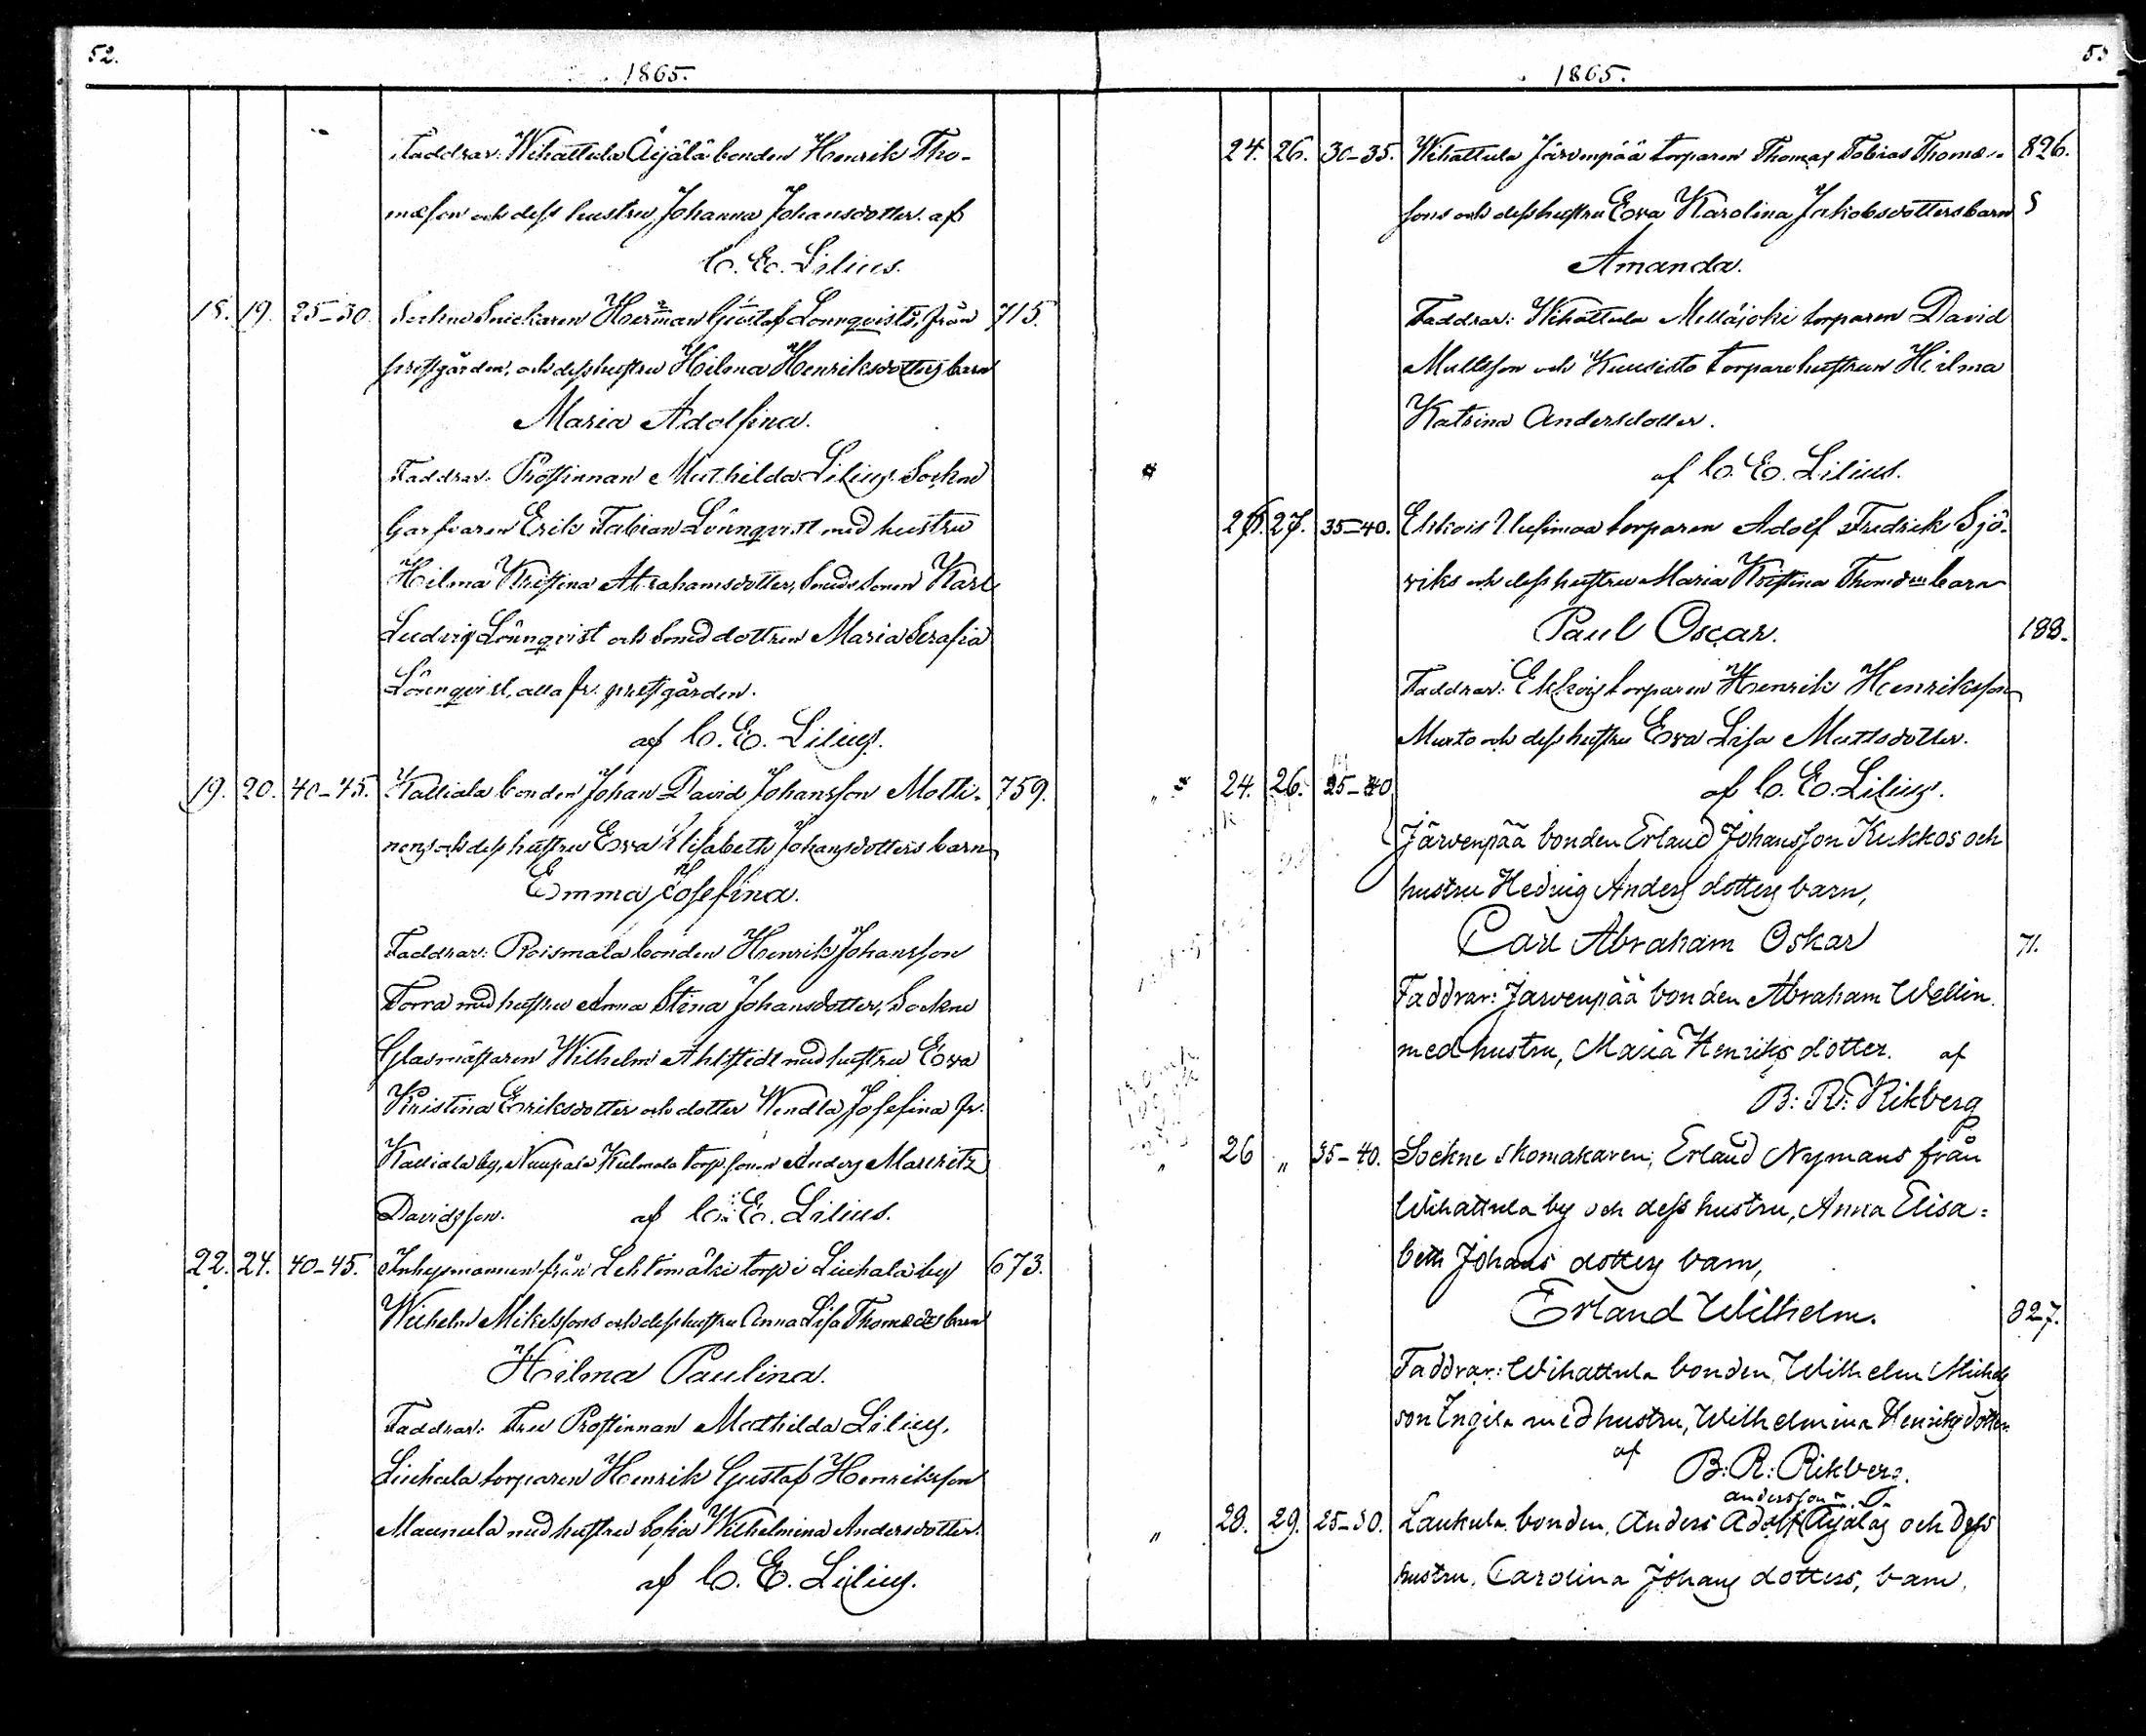 52.
1865.
Faddrar: Wihattula Äijälä bonden Henrik Tho-
mæson och dess hustru Johanna Johansdotter. af
C. E. Lilius.
18. 19. 25–30. Sockne Snickaren Herman Gustaf Lönnqvists, från 715.
prestgården, och dess hustru Hilma Henriksdotters barn
Maria Adolfina.
Faddrar: Prostinnan Mathilda Lilius, Sockne
Garfvaren Erik Fabian Lönnqvist med hustru
Hilma Kristina Abrahamsdotter, Smedssonen Karl
Ludvig Lönnqvist och Smeddottren Maria Serafia
Lönnqvist, alla fr. prestgården.
af C. E. Lilius.
19. 20. 40–45. Kalliala bonden Johan David Johansson Molli- 759.
nens och dess hustru Eva Elisabeth Johansdotters barn
Emma Josefina.
Faddrar: Roismala bonden Henrik Johansson
Torra med hustru Anna Stina Johansdotter, Sockne
Glasmästaren Wilhelm Ahlstedt med hustru Eva
Kristina Eriksdotter och dotter Wendla Josefina fr.
Kalliala by, Nuupala Kulmala torp. sonen Anders Mauritz
Davidsson. af C. E. Lilius.
22. 24. 40–45. Inhysmannen från Lehtimäki torp i Liuhala by 673.
Wilhelm Mikelssons och dess hustru Anna Lisa Thomæds barn
Hilma Paulina.
Faddrar: Fru Prostinnan Mathilda Lilius,
Liuhala torparen Henrik Gustaf Henriksson
Maunula med hustru Sofia Wilhelmina Andersdotter.
af C. E. Lilius.
53
1865.
24. 26. 30–35. Wihattula Järvenpää torparen Thomas Tobias Thomæ- 826.
sons och dess hustru Eva Karolina Jakobsdotters barn
Amanda.
Faddrar: Wihattula Myllyjoki torparen David
Mattsson och Kuusisto torpare hustrun Hilma
Katrina Andersdotter.
af C. E. Lilius.
27. 35–40. torparen Adolf Fredrik Sjö-
viks och dess hustru Maria Kristina Thomædrs barn
Paul Oscar. 188.
Faddrar: torparen Henrik Henriksson
Murto och dess hustru Eva Lisa Mattsdotter.
af C. E. Lilius.
" 24. 26. 35–40
Järvenpää bonden Erland Johansson Kukkos och
hustru Hedvig Anders dotters barn,
Carl Abraham Oskar 71.
Faddrar: Järvenpää bonden Abraham Wellin
med hustru, Maria Henriks dotter. af
B: R: Rikberg
" 26 " 35–40. Sockne skomakaren, Erland Nymans från
Wihattula by och dess hustru, Anna Elisa=
beth Johans dotters barn,
Erland Wilhelm. 827.
Faddrar: Wihattula bonden, Wilhelm Michels
son Ingila med hustru, Wilhelmina Henriks dotter.
af B: R: Rikberg.
andersson
" 28. 29. 25–30. Laukula bonden, Anders Adolf Äijäläs och dess
hustru, Carolina Johans dotters, barn,